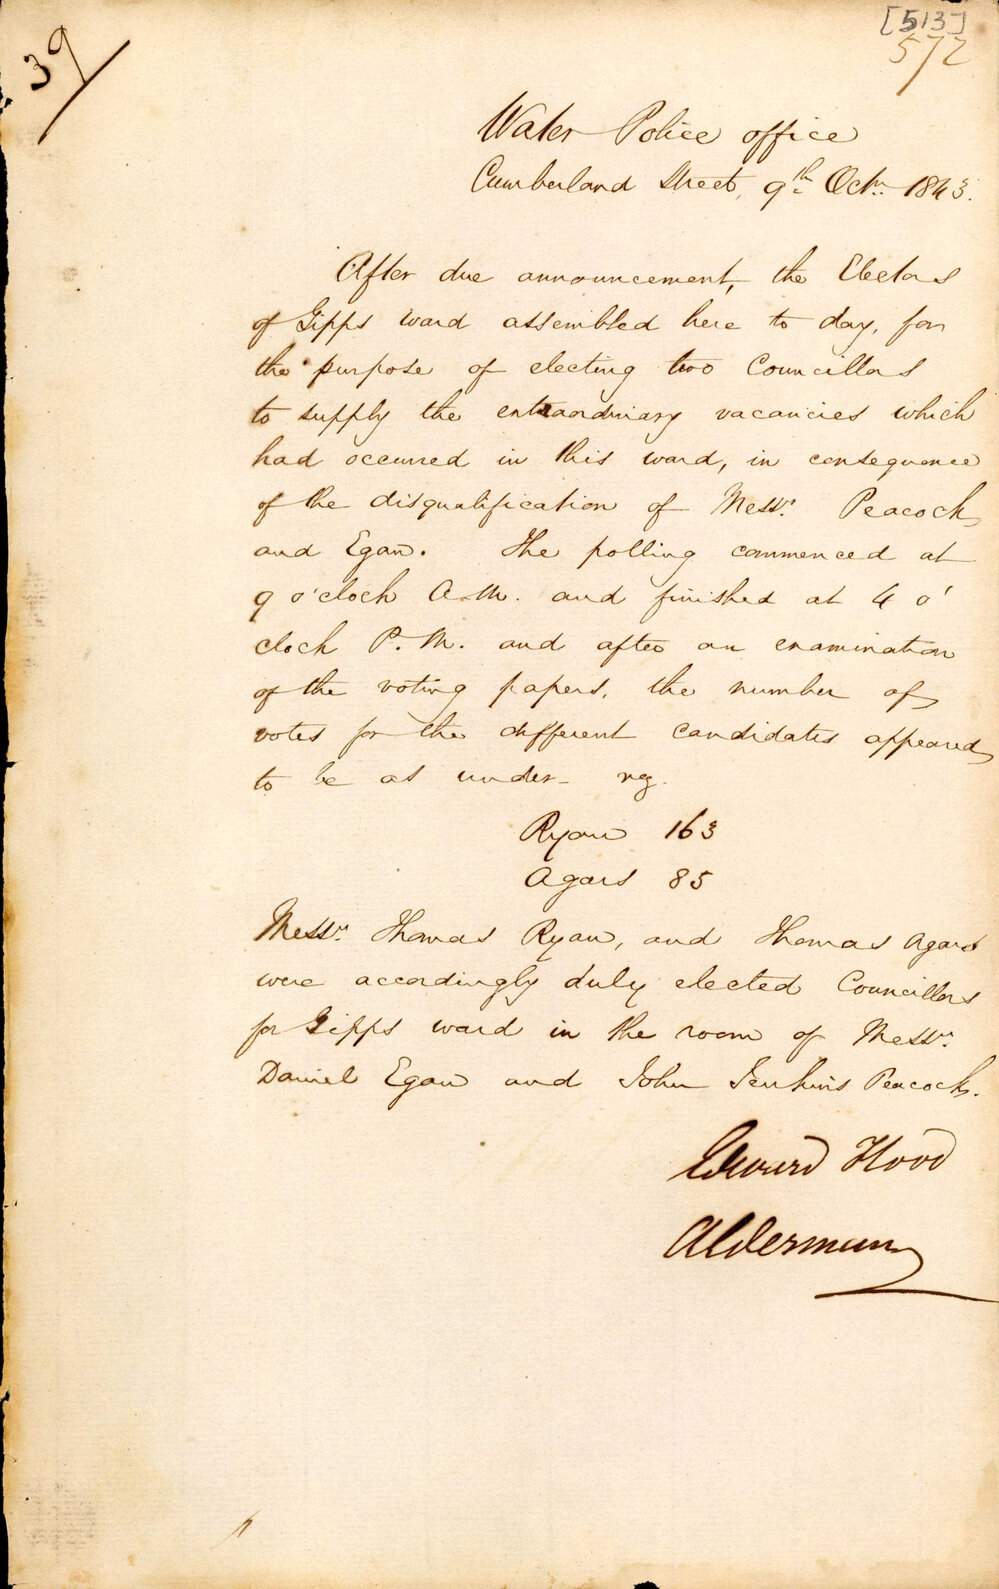 [513]
572
39
Water Police office
Cumberland Street, 9th Octr. 1843.
After due announcement, the Electors
of Gipps ward assembled here to day, for
the purpose of electing two Councillors
to supply the extraordinary vacancies which
had occurred in this ward, in consequence
of the disqualification of Messrs. Peacock
and Egan. The polling commenced at
9 o'clock A.M. and finished at 4 o'
clock P.M. and after an examination
of the voting papers, the number of
votes for the different candidates appeared
to be as under - vz.
Ryan 163
Agars 85
Messrs. Thomas Ryan, and Thomas Agars
were accordingly duly elected Councillors
for Gipps ward in the room of Messrs.
Daniel Egan and John Jenkins Peacock.
Edward Flood
Alderman